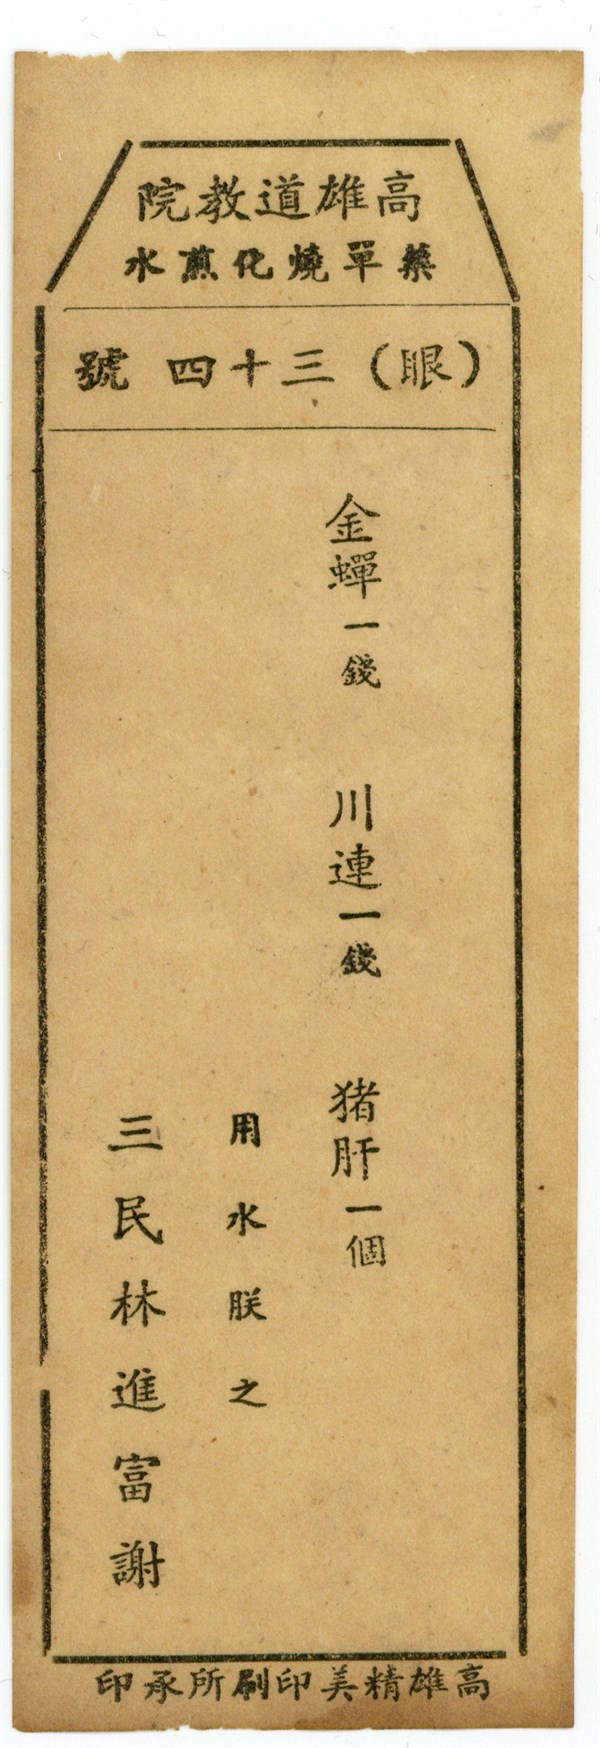 高雄道教院
藥單燒化煎水
（眼）三十四號
金蟬一錢 川連一錢 猪肝一個
用水朕之
三民林進富謝
高雄精美印刷所承印